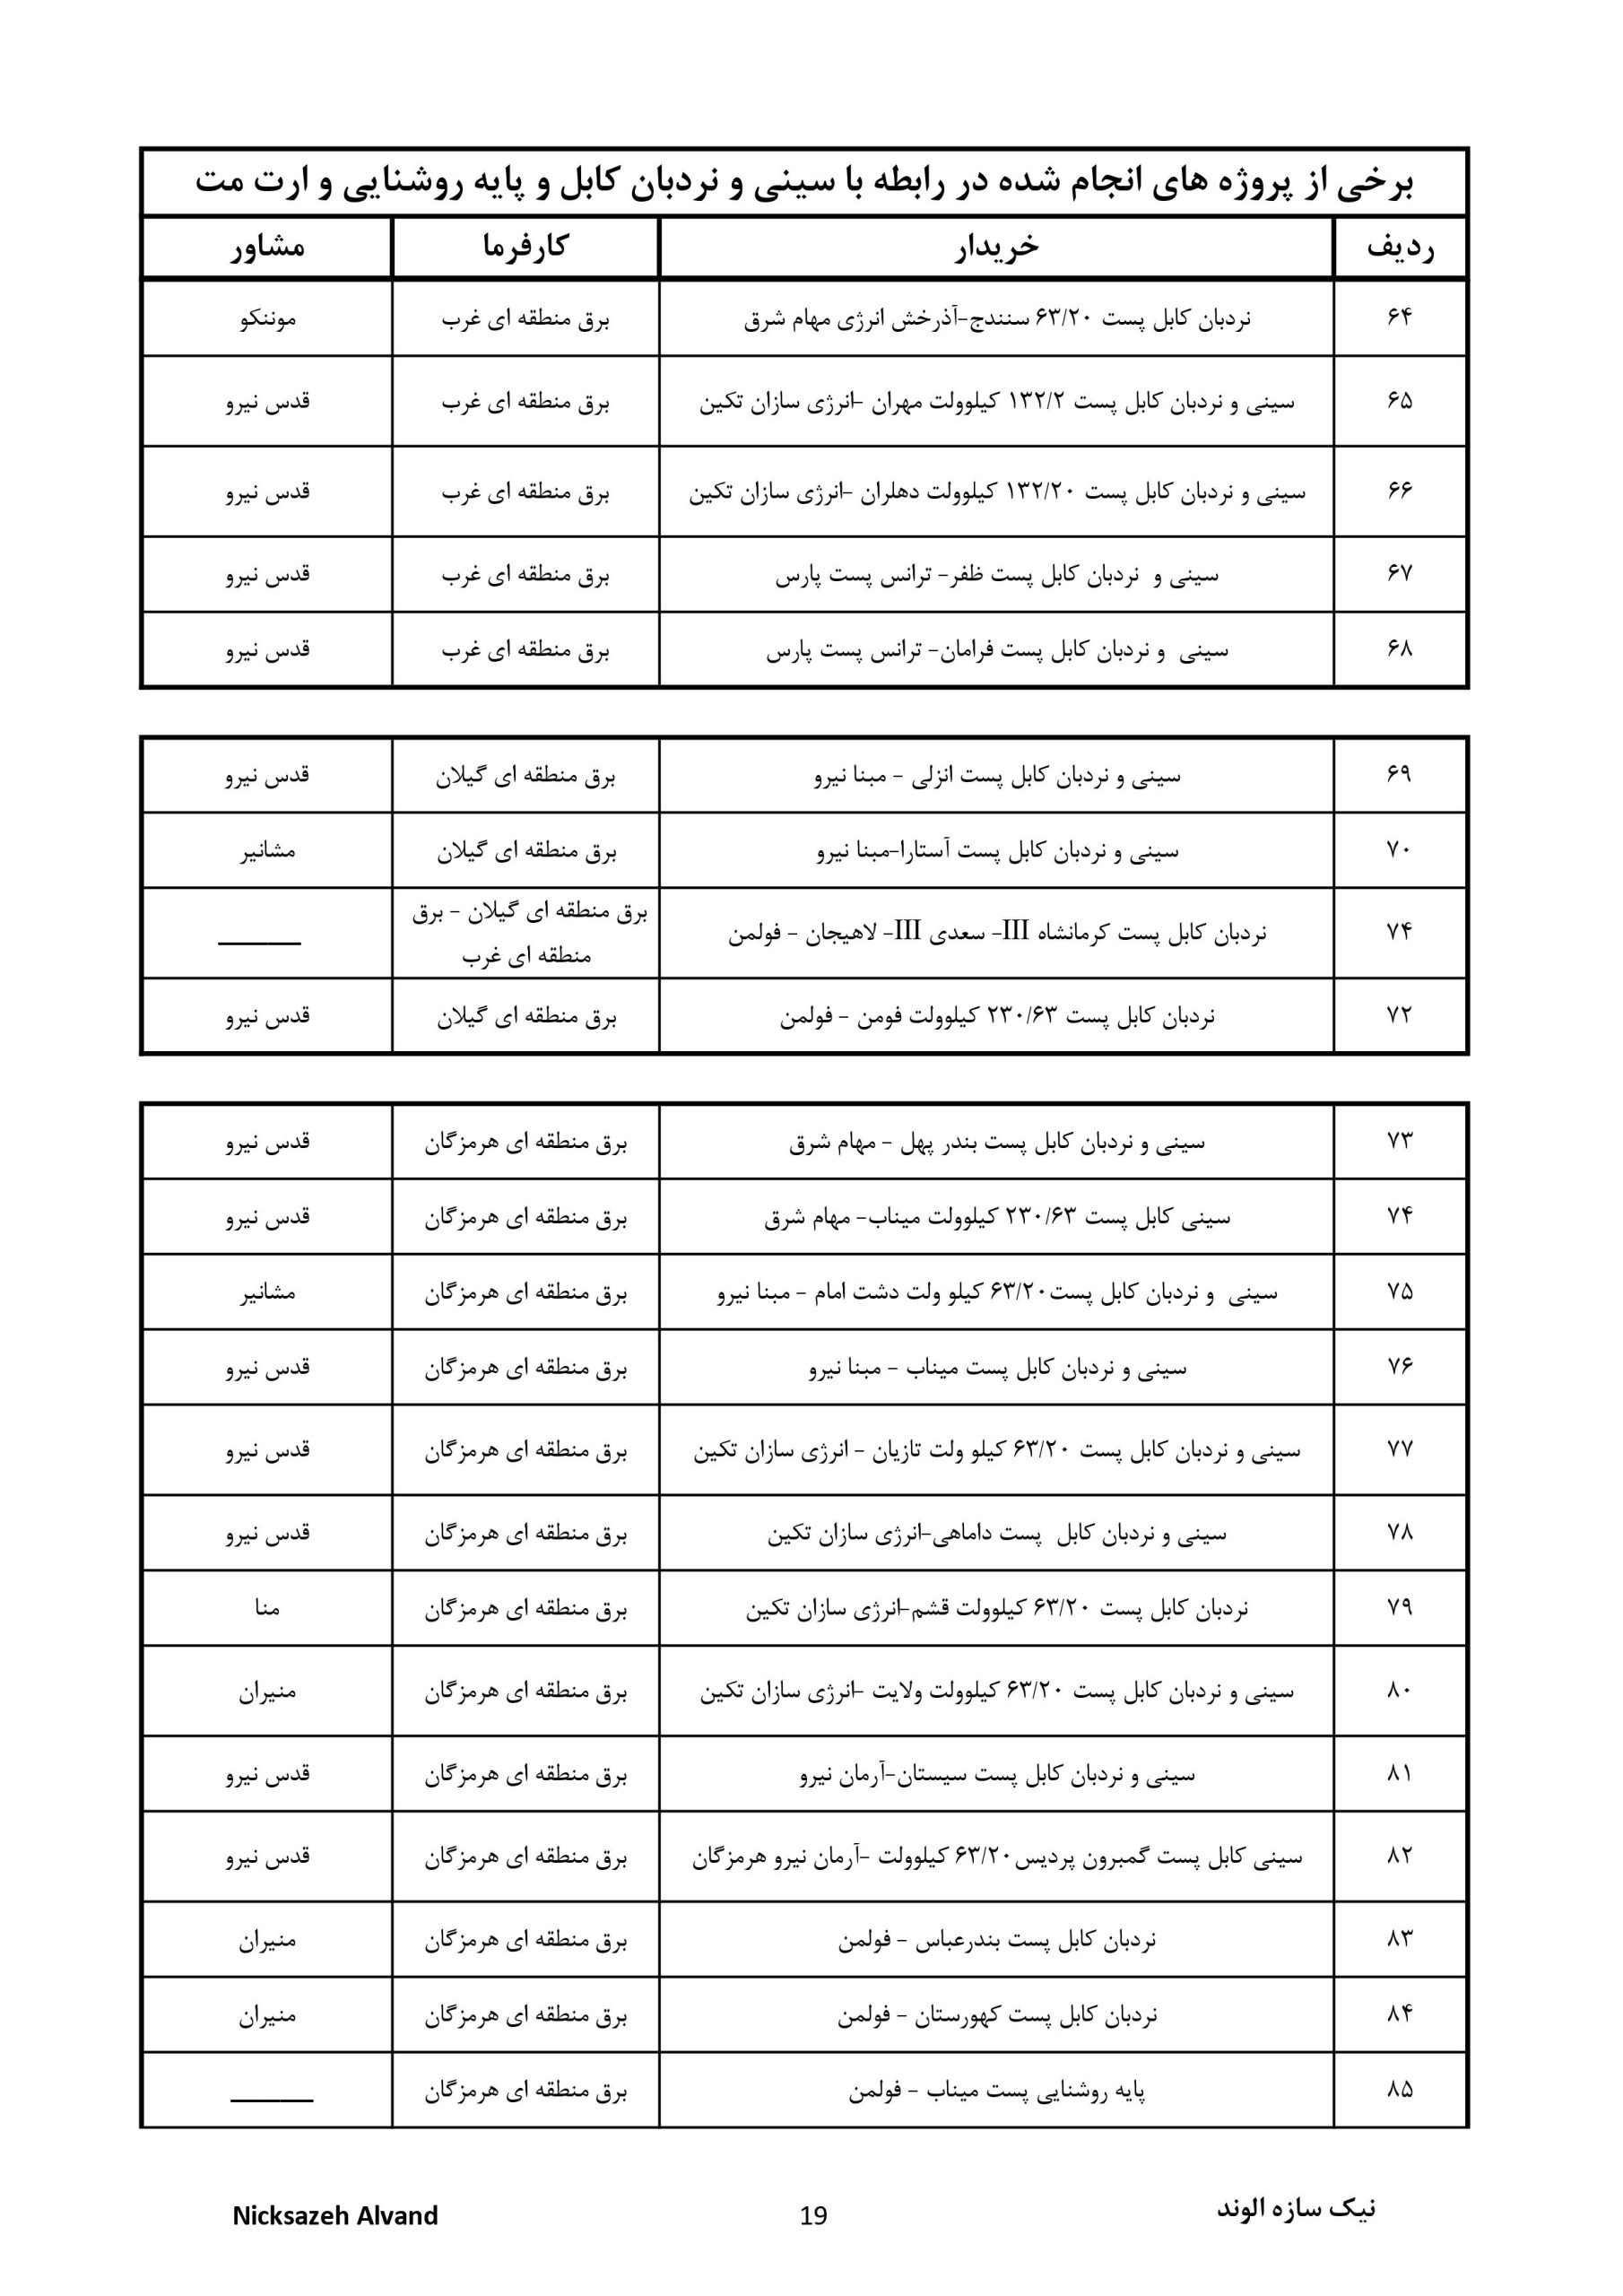 برخی از پروژه های انجام شده در رابطه با سینی و نردبان کابل و پایه روشنایی و ارت مت
ردیف خریدار کارفرما مشاور
۶۴ نردبان کابل پست ۶۳/۲۰ سنندج-آذرخش انرژی مهام شرق برق منطقه ای غرب موننکو
۶۵ سینی و نردبان کابل پست ۱۳۲/۲ کیلوولت مهران -انرژی سازان تکین برق منطقه ای غرب قدس نیرو
۶۶ سینی و نردبان کابل پست ۱۳۲/۲۰ کیلوولت دهلران -انرژی سازان تکین برق منطقه ای غرب قدس نیرو
۶۷ سینی و نردبان کابل پست ظفر- ترانس پست پارس برق منطقه ای غرب قدس نیرو
۶۸ سینی و نردبان کابل پست فرامان- ترانس پست پارس برق منطقه ای غرب قدس نیرو
۶۹ سینی و نردبان کابل پست انزلی - مبنا نیرو برق منطقه ای گیلان قدس نیرو
۷۰ سینی و نردبان کابل پست آستارا-مبنا نیرو برق منطقه ای گیلان مشانیر
۷۴ نردبان کابل پست کرمانشاه III- سعدی III- لاهیجان - فولمن برق منطقه ای گیلان - برق
منطقه ای غرب ______
۷۲ نردبان کابل پست ۲۳۰/۶۳ کیلوولت فومن - فولمن برق منطقه ای گیلان قدس نیرو
۷۳ سینی و نردبان کابل پست بندر پهل - مهام شرق برق منطقه ای هرمزگان قدس نیرو
۷۴ سینی کابل پست ۲۳۰/۶۳ کیلوولت میناب- مهام شرق برق منطقه ای هرمزگان قدس نیرو
۷۵ سینی و نردبان کابل پست۶۳/۲۰ کیلو ولت دشت امام - مبنا نیرو برق منطقه ای هرمزگان مشانیر
۷۶ سینی و نردبان کابل پست میناب - مبنا نیرو برق منطقه ای هرمزگان قدس نیرو
۷۷ سینی و نردبان کابل پست ۶۳/۲۰ کیلو ولت تازیان - انرژی سازان تکین برق منطقه ای هرمزگان قدس نیرو
۷۸ سینی و نردبان کابل پست داماهی-انرژی سازان تکین برق منطقه ای هرمزگان قدس نیرو
۷۹ نردبان کابل پست ۶۳/۲۰ کیلوولت قشم-انرژی سازان تکین برق منطقه ای هرمزگان منا
۸۰ سینی و نردبان کابل پست ۶۳/۲۰ کیلوولت ولایت -انرژی سازان تکین برق منطقه ای هرمزگان منیران
۸۱ سینی و نردبان کابل پست سیستان-آرمان نیرو برق منطقه ای هرمزگان قدس نیرو
۸۲ سینی کابل پست گمبرون پردیس۶۳/۲۰ کیلوولت -آرمان نیرو هرمزگان برق منطقه ای هرمزگان قدس نیرو
۸۳ نردبان کابل پست بندرعباس - فولمن برق منطقه ای هرمزگان منیران
۸۴ نردبان کابل پست کهورستان - فولمن برق منطقه ای هرمزگان منیران
۸۵ پایه روشنایی پست میناب - فولمن برق منطقه ای هرمزگان ______
نیک سازه الوند 19 Nicksazeh Alvand